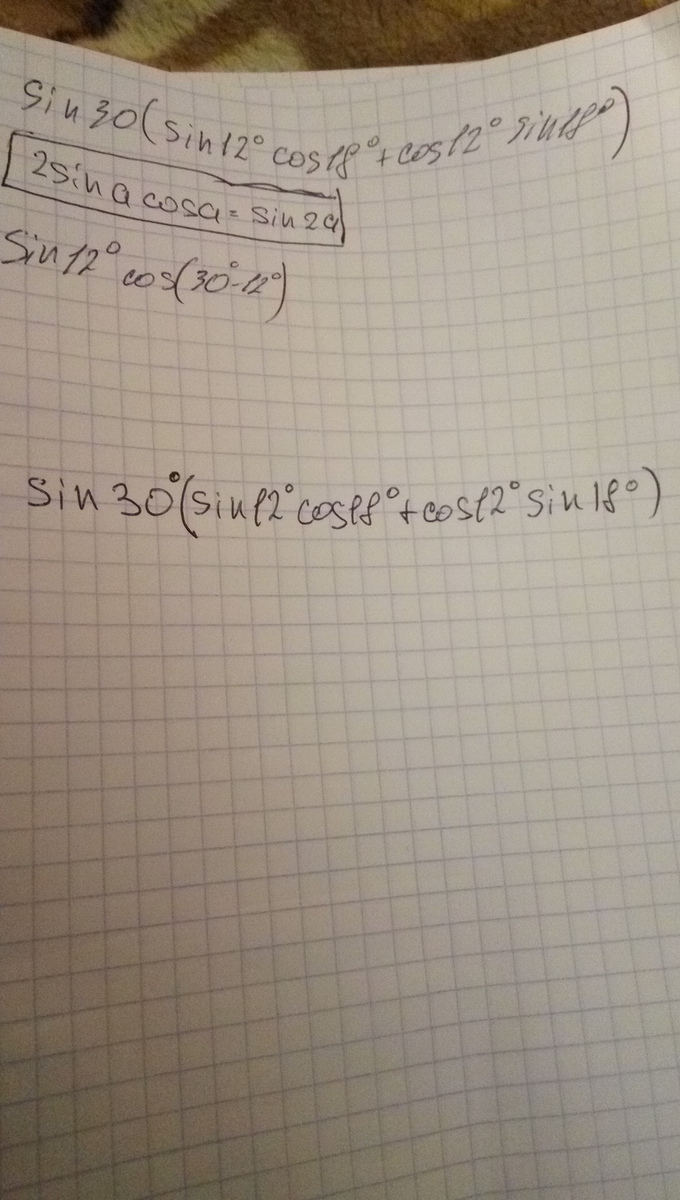 sin30(sin12° cos18° + cos12° sin18°)
2sin a cosa = sin2a
sin12° cos(30°-12°)
sin30°(sin12°cos18°+cos12°sin18°)